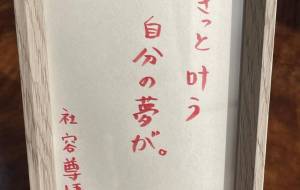 きっと 叶う
自分の夢が。
社容尊